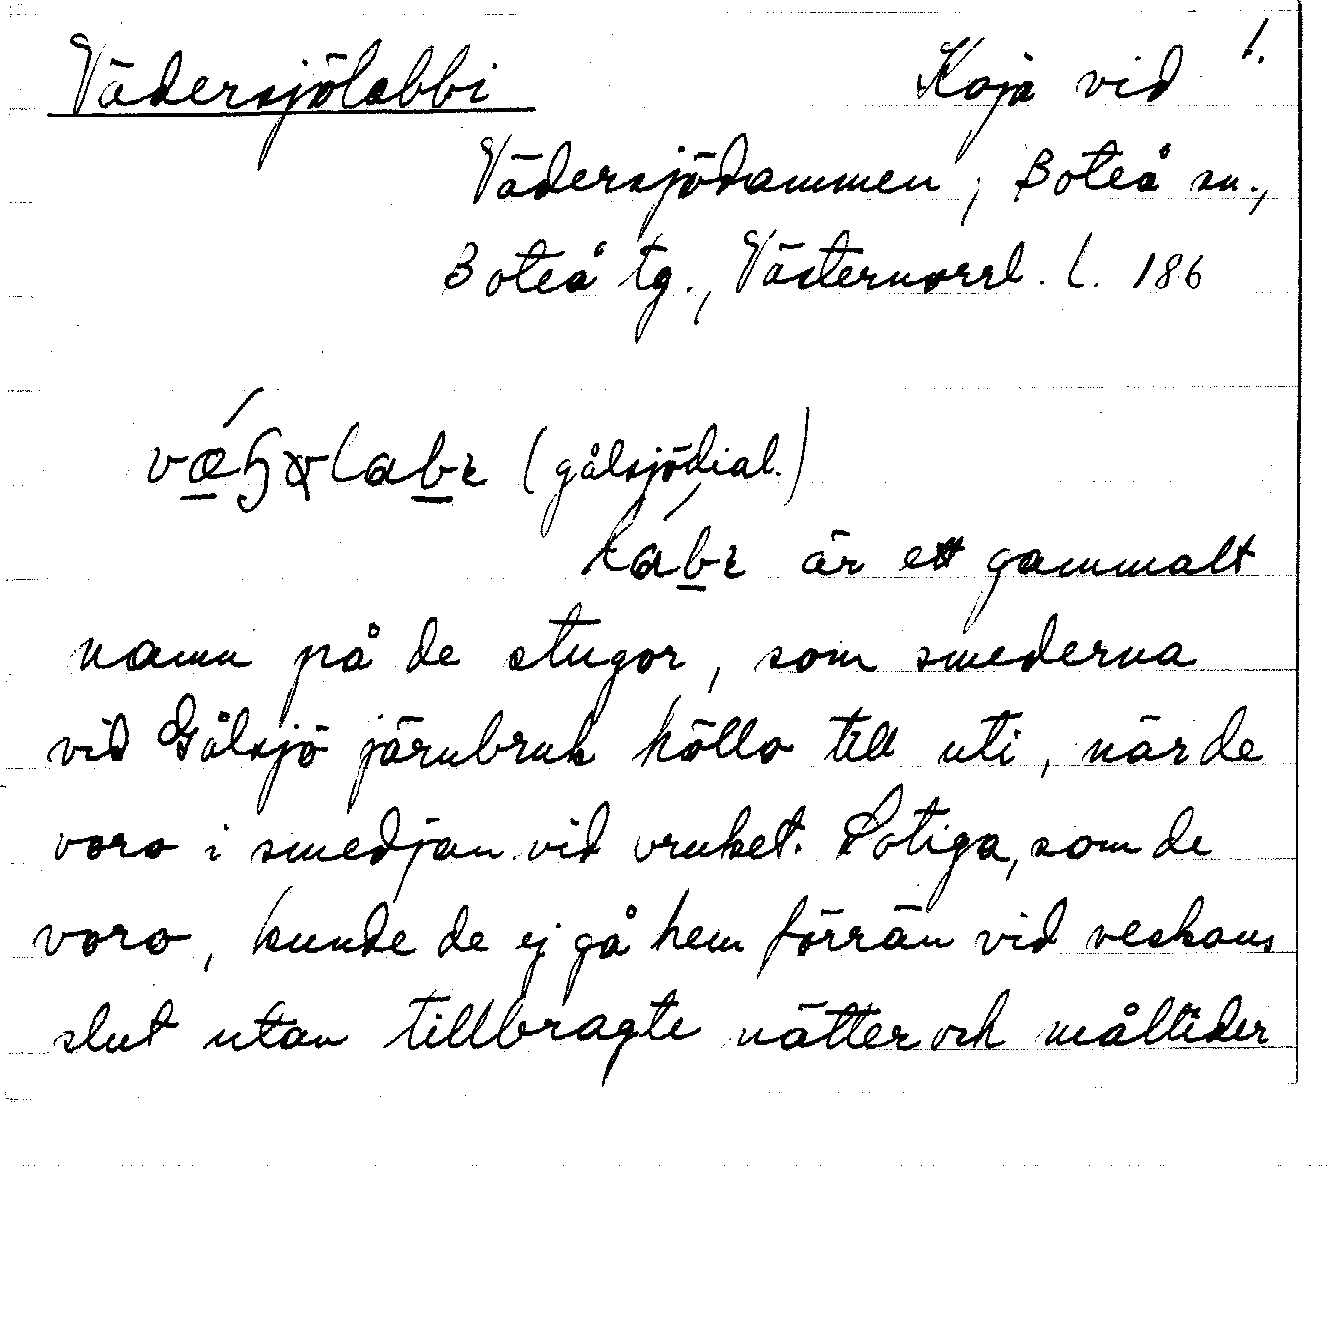 1.
Vädersjölabbi Koja vid
Vädersjödammen, Boteå sn.,
Boteå tg., Västernorrl. l. 186
(gålsjödial.)
lábι är ett gammalt
namn på de stugor, som smederna
vid Gålsjö järnbruk höllo till uti, när de
voro i smedjan vid vruket. Sotiga, som de
voro, kunde de ej gå hem förrän vid veckans
slut utan tillbragte nätter och måltider